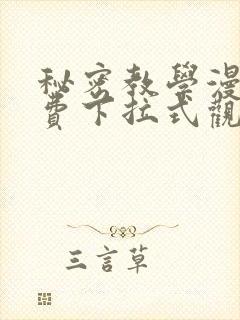 秘密教學漫
費下拉式觀
三言草